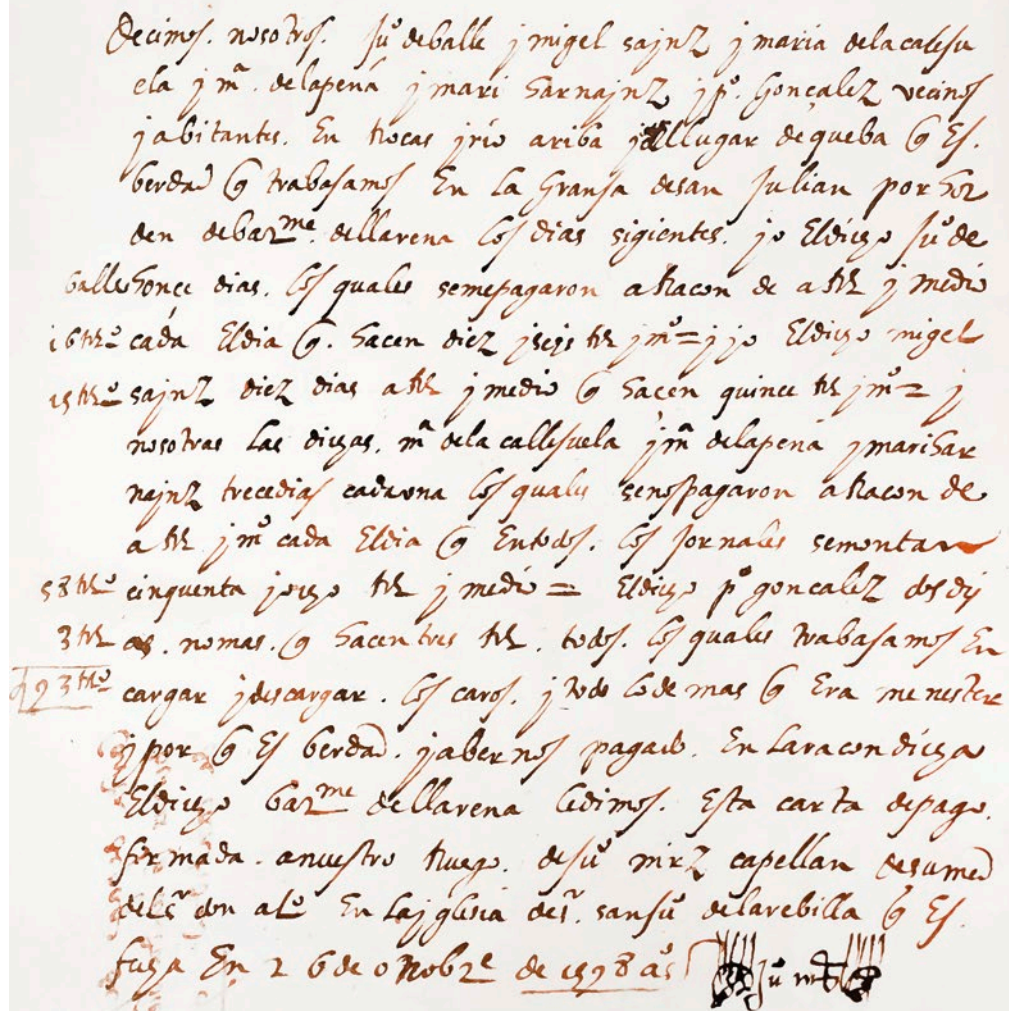 Decimos. nosotros. Juº de balle j migel sajnz j maria de la calesu
ela j mª. de la pena j mariharnajnz j pº. gonçalez vecinos
j abitantes. En Rocas j rio ariba j del lugar de queba q Es.
berdad q trabasamos En La gransa de san Julian por hor
den de barme. de llarena los dias sigientes. jo El dicho Juº de
balle honce dias. los quales se me pagaron a Racon de a Rl j medio
16 rls º cada El dia q. hacen diez j seys rls j mº = j jo El dicho migel
15 rls º sajnz diez dias a Rl j medio q hacen quince rls j mº = j
nosotras Las dichas. mª de la callesuela j mª de la pena j mari har
najnz trece dias cada ona los quales se nos pagaron a Racon de
a Rl j mº cada El dia q En todos. los jornales se montan
58 rls º cinquenta j ocho rls j medio = El dicho pº goncalez dos dy
3 rls as. no mas. q hacen tres rls. todos. los quales trabasamos En
93 rls º cargar j descargar. los caros. j todo lo de mas q Era menester
j por q Es berdad. j abernos pagado. En La racon dicha
El dicho barme de llarena le dimos. Esta carta de pago.
firmada. a nuestro Ruego. de juº mrz capellan de su med
del sr don alº En La jglesia de sr. san juº de la rebilla q Es.
fecha En 26 de o nobre de 1598 as Juº